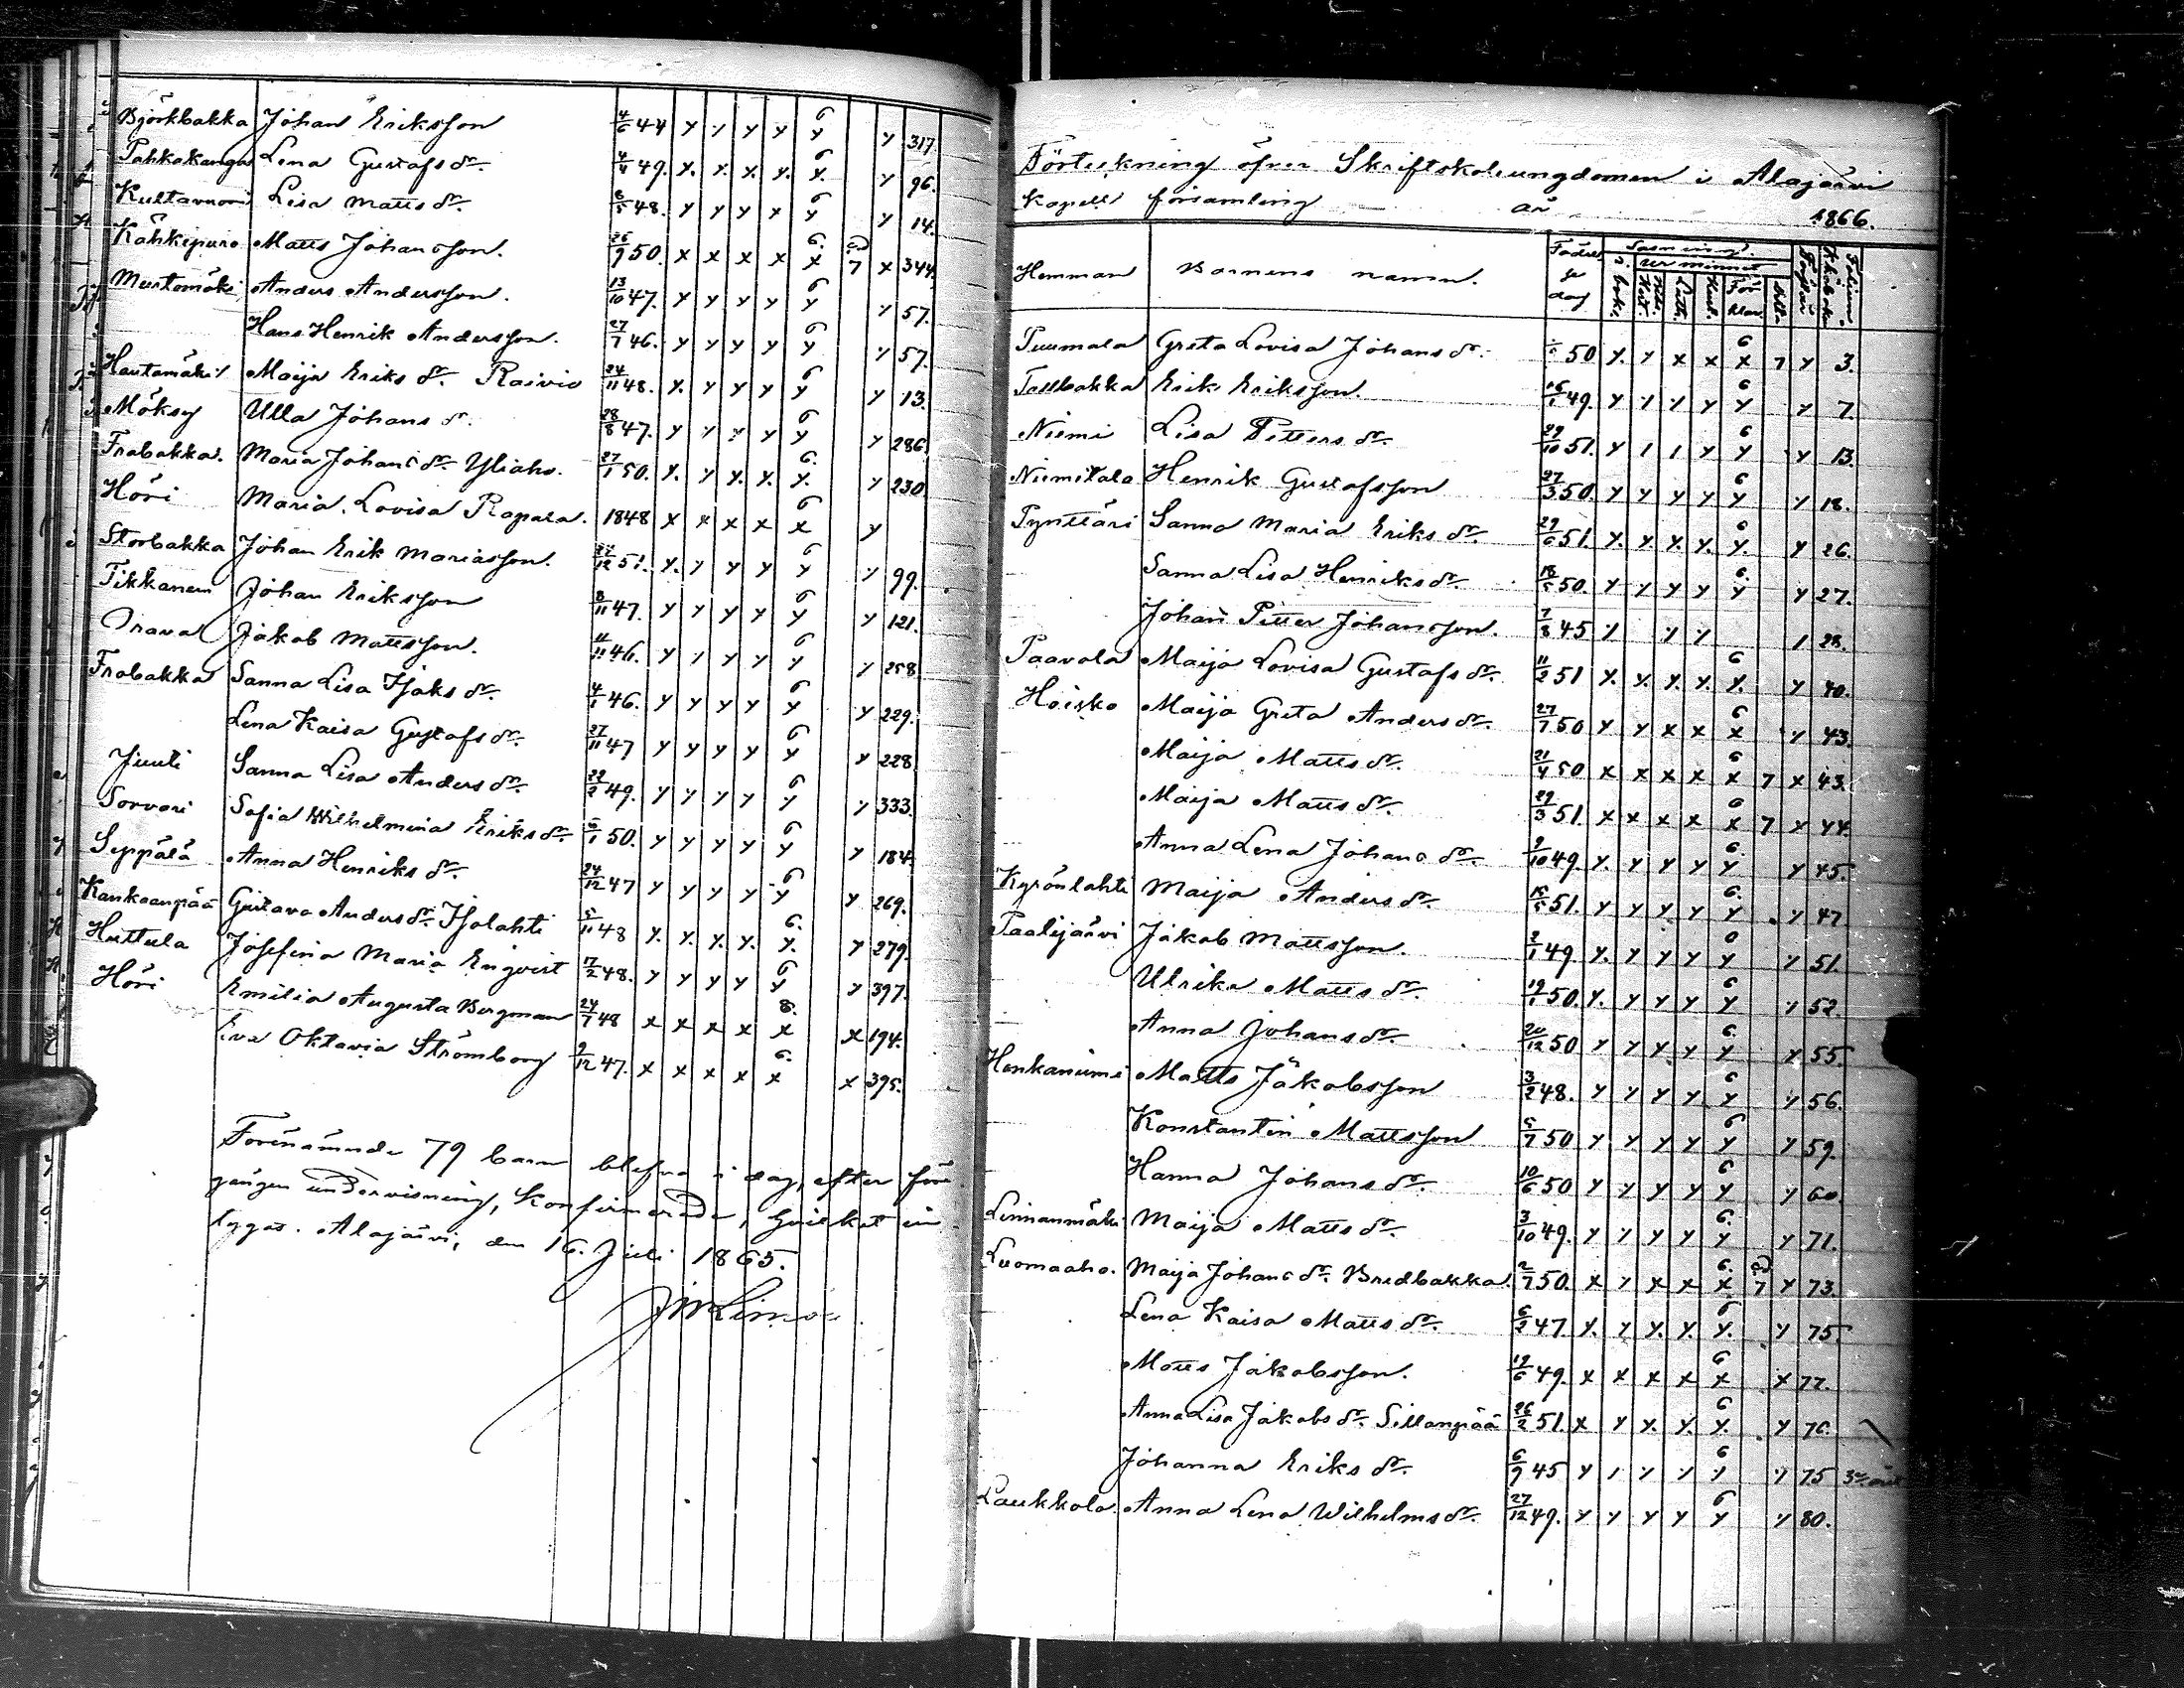 Björkbakka Johan Eriksson 4/6 44 y y y y 6 y y 317.
Pahkakangas Lena Gustafs dr. 4/4 49. y. y. y. y. 6 y. y 96.
Kultavuori Lisa Matts dr. 48. y y y x 6 y y 14.
Kähkipuro Matts Johansson. 26/9 50. x x x x 6. x 7 x 344.
Mustomäki Anders Andersson. 13/10 47. y y y y 6 y y 57.
Hans Henrik Andersson. 27/7 46. y y y y 6 y y 57.
Hautamäki Maija Eriks dr. Raivio 24/11 48. y. y y y 6 y y 13.
Möksy Ulla Johans dr. 28/8 47. y y y y 6 y y 286.
Frabakka. Maria Johans dr. Yliaho. 27/1 50. y. y y. y. 6. y. y 230
Höri Maria Lovisa Rapala. 1848 x x x x 6 x y
Storbakka Johan Erik Mariasson. 51. y. y y y 6 y y 99.
Tikkanen Johan Eriksson 8/11 47. y y y y 6 y y 121.
Jakob Mattsson. 11/11 46. y y y y 6 y y 258
Frabakka Sanna Lisa Isaks dr. 46. y y y y 6 y y 229.
Lena Kaisa Gustafs dr. 27/11 47 y y y y 6 y y 228
Juuti Sanna Lisa Anders dr. 22/2 49. y y y y 6 y y 333.
Sorvari Sofia Wilhelmina Eriks dr. 50. y y y y 6 y y 184.
Seppälä Anna Henriks dr. 24/12 47 y y y y 6 y y 269.
Kankaanpää Gustava Anders dr. Isolahti 5/11 48 y. y. y. y. 6. y. y 279.
Huttula Josefina Maria Enqvist 17/2 48. y y y y 6 y y 397.
Höri Emilia Augusta Bergman 24/7 48 x x x x 8. x x 194.
Eva Oktavia Strömborg 9/12 47. x x x x 6. x x 395.
Förenämnde 79 barn blefvo i dag, efter före
gången undervisning, Konfirmerade, hvilket in
tygas. Alajärvi, den 16. Juli 1865.
Förteckning öfver Skriftskoleungdomen i Alajärvi
Kapell församling år 1866.
Hemman Barnens namn. Födelse dag Läsning. i bok. ur minnet
Puumala Greta Lovisa Johans dr. 50 y. y x x 6 x 7 y 3.
Tallbakka Erik Eriksson. 16/1 49. y y y y 6 y y 7.
Niemi Lisa Petters dr. 29/10 51. y 1 1 y 6 y y 13.
Niemitalo Henrik Gustafsson 27/3 50. y y y y 6 y y 18.
Pynttäri Sanna Maria Eriks dr. 29/6 51. y. y. y. y. 6 y. y 26.
Sanna Lisa Henriks dr. 18/5 50. y y y y 6. y y 27.
Johan Petter Johansson. 7/8 45 y y y 1 28.
Paavola Maija Lovisa Gustafs dr. 11/2 51 y. y. y. y. 6 y. y 40.
Hoisko Maija Greta Anders dr. 27/7 50 y y x x 6 x y 43.
Maija Matts dr. 21/4 50 x x x x 6 x 7 x 43.
Maija Matts dr. 29/3 51. x x x x 6 x 7 x 44.
Anna Lena Johans dr. 9/10 49. y. y y y 6. y y 45.
Kyrönlahti Maija Anders dr. 15/5 51. y y y y 6. y y 47
Paalijärvi Jakob Mattsson. 2/1 49. y. y y y 6 y y 51.
Ulrika Matts dr. 19/1 50. y. y y y 6 y y 52.
Anna Johans dr. 20/12 50 y y y y 6. y y 55.
Henkaniemi Matts Jakobsson 3/2 48. y y y y 6 y y 56.
Konstantin Mattsson 5/7 50 y y. y y 6 y y 59.
Hanna Johans dr. 10/6 50 y y y y 6 y y 60.
Linnanmäki Maija Matts dr. 3/10 49. y y y y 6. y y 71.
Luomaaho. Maija Johans dr. Bredbakka. 2/7 50. x y x x 6. x 7 y 73.
Lena Kaisa Matts dr. 6/2 47. y. y y. y. 6 y. y 75
Matts Jakobsson. 19/6 49. x x x x 6 x x 77.
Anna Lisa Jakobs dr. Sillanpää 26/2 51. x y y. y. 6 y. y 76.
Johanna Eriks dr. 6/9 45 y 1 y y 6 y y 75
Laukkola. Anna Lena Wilhelms dr. 27/12 49. y y y y 6 y y 80.